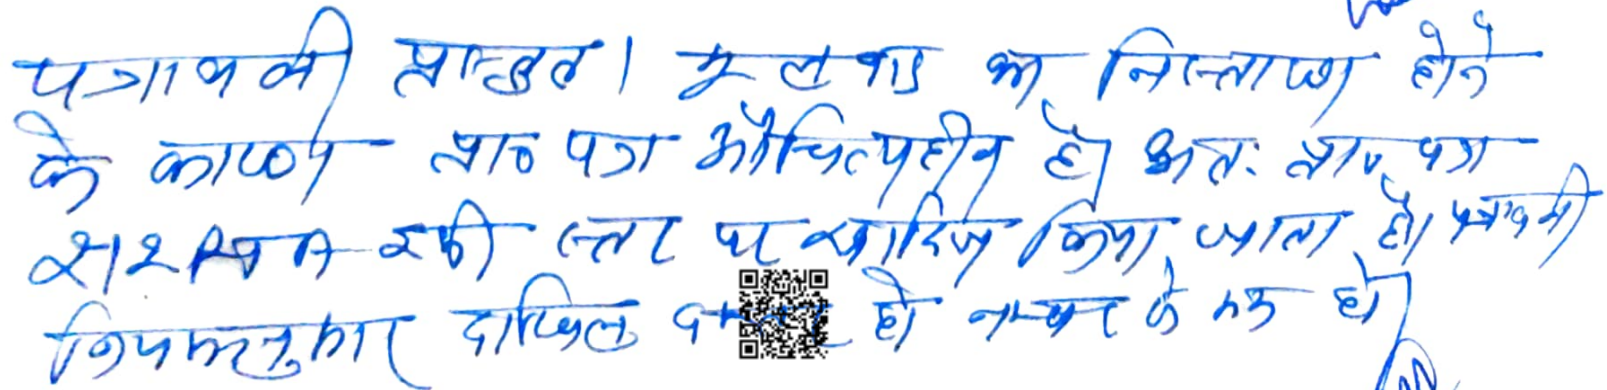 पत्रावली प्रस्तुत। मूल वाद का निस्तारण होने
के कारण प्रा० पत्र औचित्यहीन है। अतः प्रा० पत्र
इसी स्तर पर खारिज किया जाता है। पत्रावली
नियमानुसार दाखिल दफ्तर हो नम्बर से कम हो।